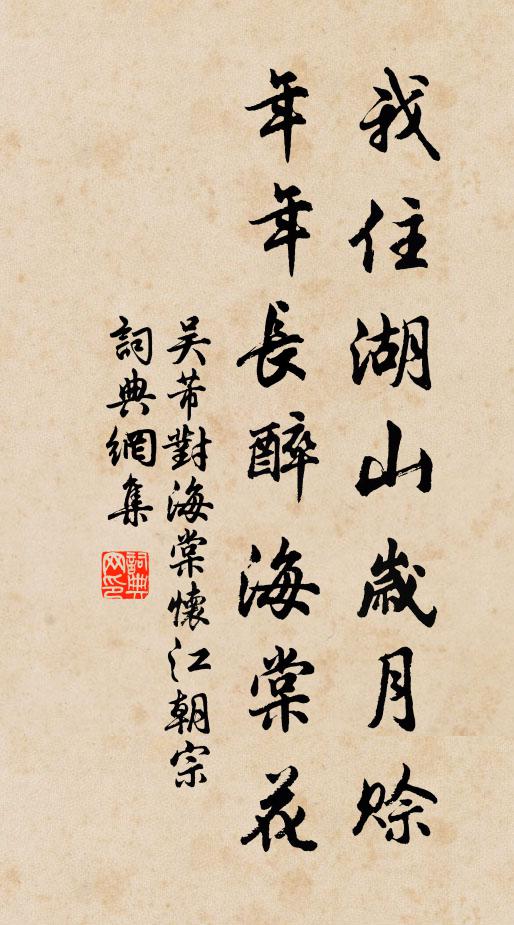 我住湖山歲月賒
年年長醉海棠花
吴芾對海棠懷江朝宗
詞典網集
詞典網印